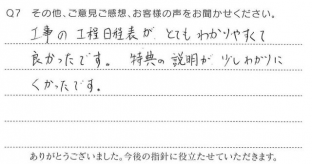 Q7 その他、ご意見ご感想、お客様の声をお聞かせください。
工事の工程日程表が、とてもわかりやすくて
良かったです。 特典の説明が少しわかりに
くかったです。
ありがとうございました。今後の指針に役立たせていただきます。